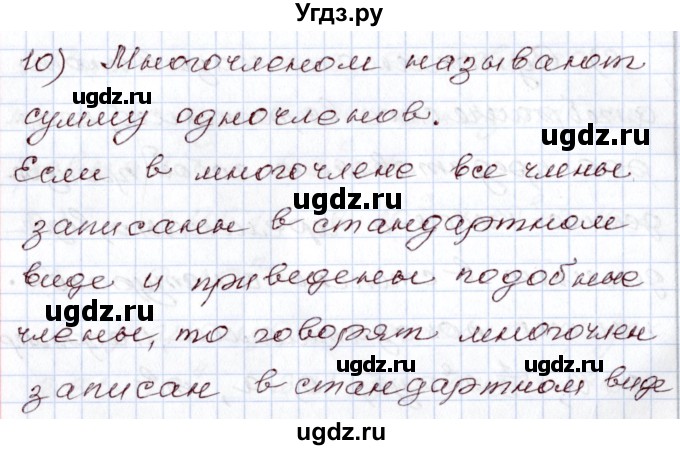 Угдз.ру
10) Многочленом называют
ugdz.ru
сумму одночленов.
ugdz.ru
Если в многочлене все члены
ugdz.ru
записаны в стандартном
виде и приведены подобные
ugdz.ru
члены, то говорят многочлен
ugdz.ru ugdz.ru
записан в стандартном виде
ugdz.ru